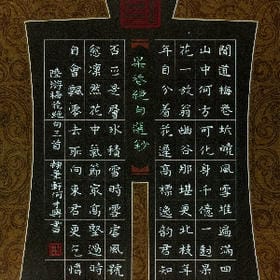 聞道梅花坼曉風雪堆遍滿四
山中何方可化身千億一樹梅
花一放翁幽谷那堪更北枝年
年自分著花遲高標逸韻君知
梅花絕句選鈔
否正是層冰積雪時雪虐風號
愈凜然花中氣節最高堅過時
自會飄零去恥向東君更乞憐
陸游梅花絕句三首